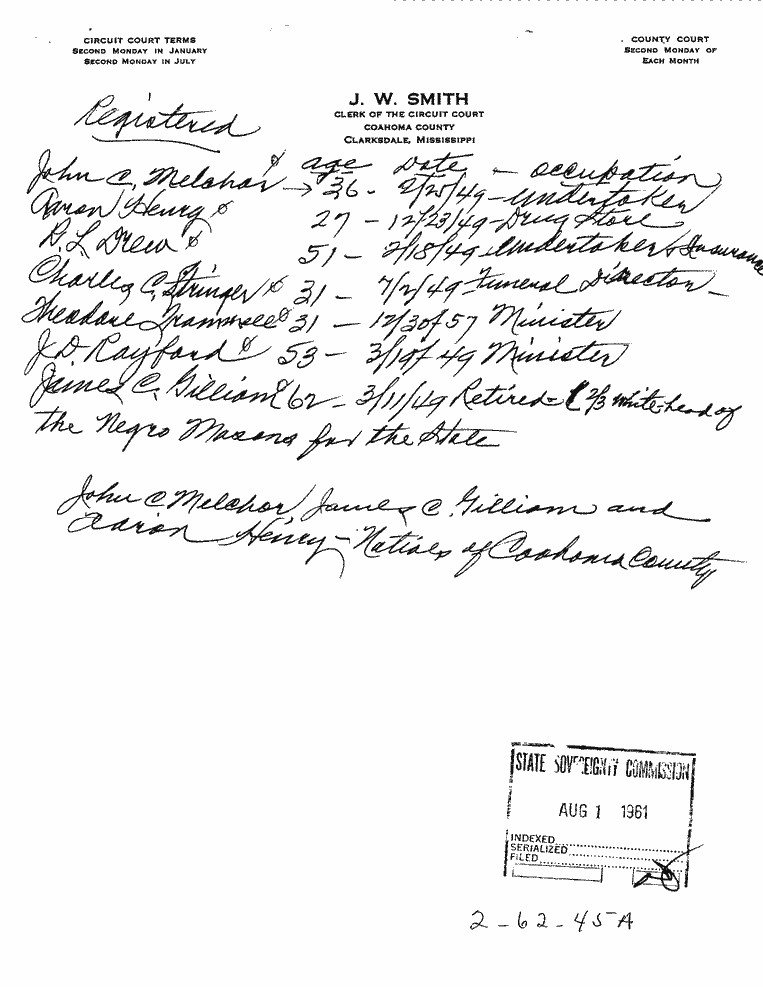 CIRCUIT COURT TERMS
SECOND MONDAY IN JANUARY
SECOND MONDAY IN JULY
COUNTY COURT
SECOND MONDAY OF
EACH MONTH
J. W. SMITH
CLERK OF THE CIRCUIT COURT
COAHOMA COUNTY
CLARKSDALE, MISSISSIPPI
Registered
age Date - occupation
John C. Melchor → 36 - 2/25/49 - Undertaker
Aaron Henry 27 - 12/23/49 - Drug Store
R. L. Drew 51 - 2/18/49 Undertaker & Insurance
Charles C. Stringer 31 - 7/2/49 Funeral Director -
Theodore Trammell 31 - 12/30/57 Minister
J. D. Rayford 53 - 3/19/49 Minister
James C. Gilliam 62 - 3/11/49 Retired - 2/3 white - head of
the Negro Masons for the State
John C Melchor, James C. Gilliam and
Aaron Henry - Natives of Coahoma County
STATE SOVEREIGNTY COMMISSION
AUG 1 1961
INDEXED
SERIALIZED
FILED
2-62-45A